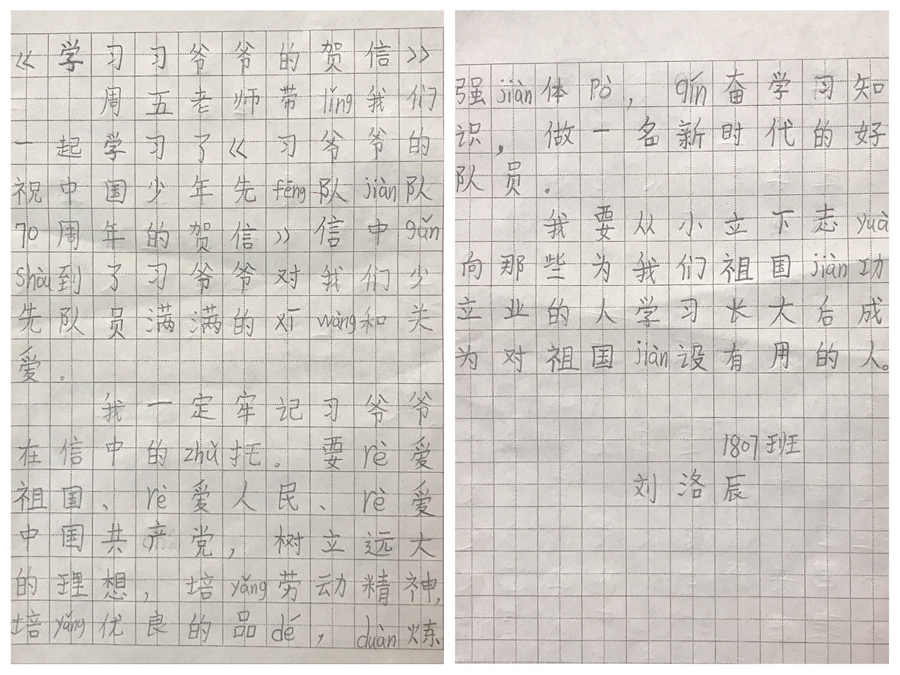 《学习习爷爷的贺信》
周五老师带lǐng我们
一起学习了《习爷爷的
祝中国少年先fēng队jiàn队
70周年的贺信》信中gǎn
shòu到了习爷爷对我们少
先队员满满的xī wàng和关
爱.
我一定牢记习爷爷
在信中的zhǔ托。要rè爱
祖国、rè爱人民、rè爱
中国共产党,树立远大
的理想,培yǎng劳动精神,
培yǎng优良的品dé,duàn炼
强jiàn体Pò,qín奋学习知
识,做一名新时代的好
队员.
我要从小立下志yuà
向那些为我们祖国jiàn功
立业的人学习长大后成
为对祖国jiàn设有用的人。
1807班
刘洛辰